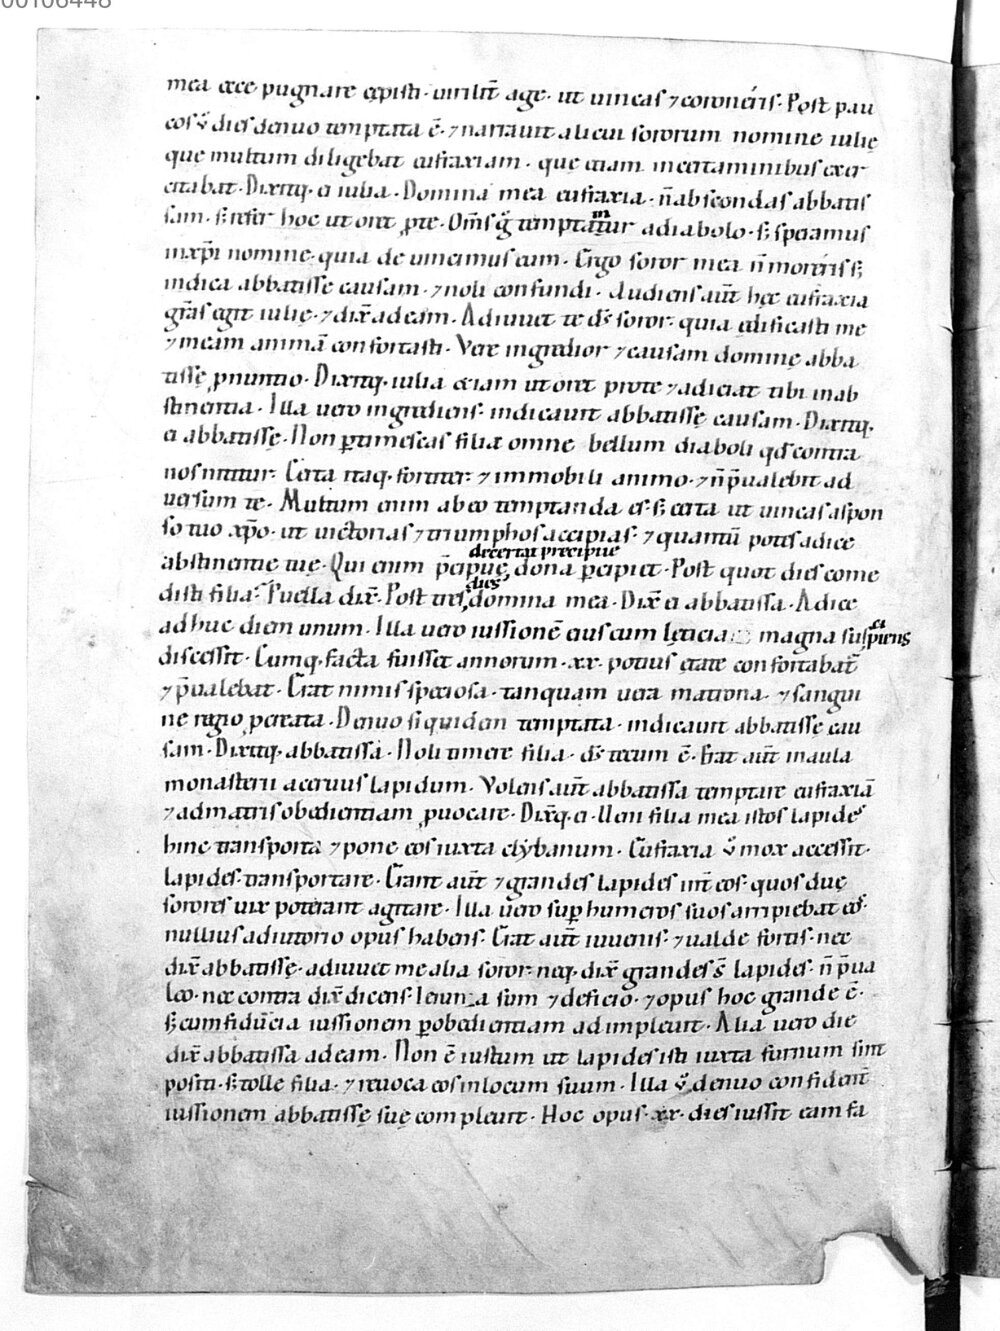 00106448
mea ecce pugnare cępisti · uirilit̄ age · ut uincas ⁊ coroneris · Post pau
cos ū dies denuo temptata ē · ⁊ narrauit alicui sororum nomine iulię
quę multum diligebat eufraxiam · quę etiam in certaminibus exer
citabat · Dixitq· ei iulia · Domina mea eufraxia · n̄ abscondas abbatis
sam · s; refer hoc ut oret ꝓ te · Om̄s g̊ temptamur a diabolo · s; speramus
in xp̄i nomine · quia deuincimus eum · Ergo soror mea n̄ moreris s;
indica abbatissę causam · ⁊ noli confundi · Audiens aūt hęc eufraxia
grās egit iulię · ⁊ dix̄ ad eam · Adiuuet te d̄s soror · quia ędificasti me
⁊ meam animā confortasti · Vere ingredior ⁊ causam dominę abba
tissę ꝓnuntio · Dixitq· iulia etiam ut oret pro te ⁊ adiciat tibi in ab
stinentia · Illa uero ingrediens · indicauit abbatissę causam · Dixitq·
ei abbatissę · Non ꝑtimescas filia omne bellum diaboli qđ contra
nos nititur · Certa itaq· fortiter · ⁊ immobili animo · ⁊ n̄ p̄ualebit ad
uersum te · Multum enim ab eo temptanda es · s; certa ut uincas a spon
so tuo xp̄o · ut uictorias ⁊ triumphos accipias · ⁊ quantū potes adice
decertat precipue
abstinentię tuę · Qui enim p̄cipuę, dona ꝑcipiet · Post quot dies come
dies
disti filia? Puella dix̄ · Post tres, domina mea · Dix̄ ei abbatissa · Adice
adhuc diem unum · Illa uero iussionē eius cum lęticia magna suscipiens
discessit · Cumq· facta fuisset annorum · xx · potius ętate confortabat̄
⁊ p̄ualebat · Erat nimis speciosa · tanquam uera matrona · ⁊ sangui
ne regio ꝓcreata · Denuo siquidem temptata · indicauit abbatissę cau
sam · Dixitq· abbatissa · Noli timere filia · d̄s tecum ē · Erat aūt in aula
monasterii aceruus lapidum · Volens aūt abbatissa temptare eufraxiā
⁊ ad matris obedientiam ꝓuocare · Dix̄q· ei · Ueni filia mea istos lapides
hinc transporta ⁊ pone eos iuxta clybanum · Eufraxia ū mox accessit ·
lapides transportare · Erant aūt ⁊ grandes lapides int̄ eos · quos duę
sorores uix poterant agitare · Illa uero suꝑ humeros suos arripiebat eos ·
nullius adiutorio opus habens · Erat aūt iuuenis · ⁊ ualde fortis · nec
dix̄ abbatissę · adiuuet me alia soror · neq· dix̄ grandes s̄ lapides · n̄ p̄ua
leo · nec contra dix̄ dicens · Ieiuna sum ⁊ deficio · ⁊ opus hoc grande ē ·
s; cum fiducia iussionem ꝑ obedientiam adimpleuit · Alia uero die
dix̄ abbatissa ad eam · Non ē iustum ut lapides isti iuxta furnum sint
positi · s; tolle filia · ⁊ reuoca eos in locum suum · Illa ū denuo confident̄
iussionem abbatissę suę compleuit · Hoc opus · xx · dies iussit eam fa